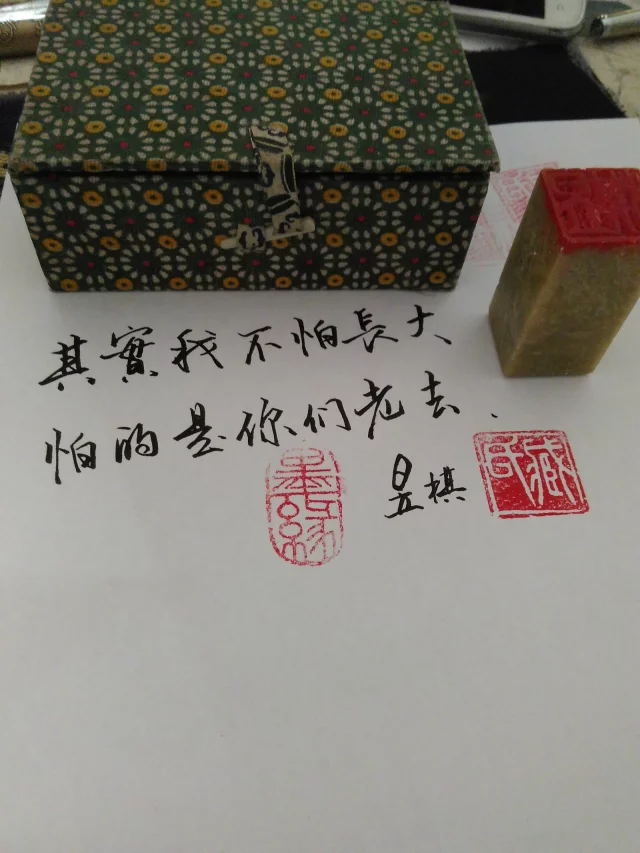 其實我不怕長大
怕的是你們老去.
昱棋
墨緣
臧氏